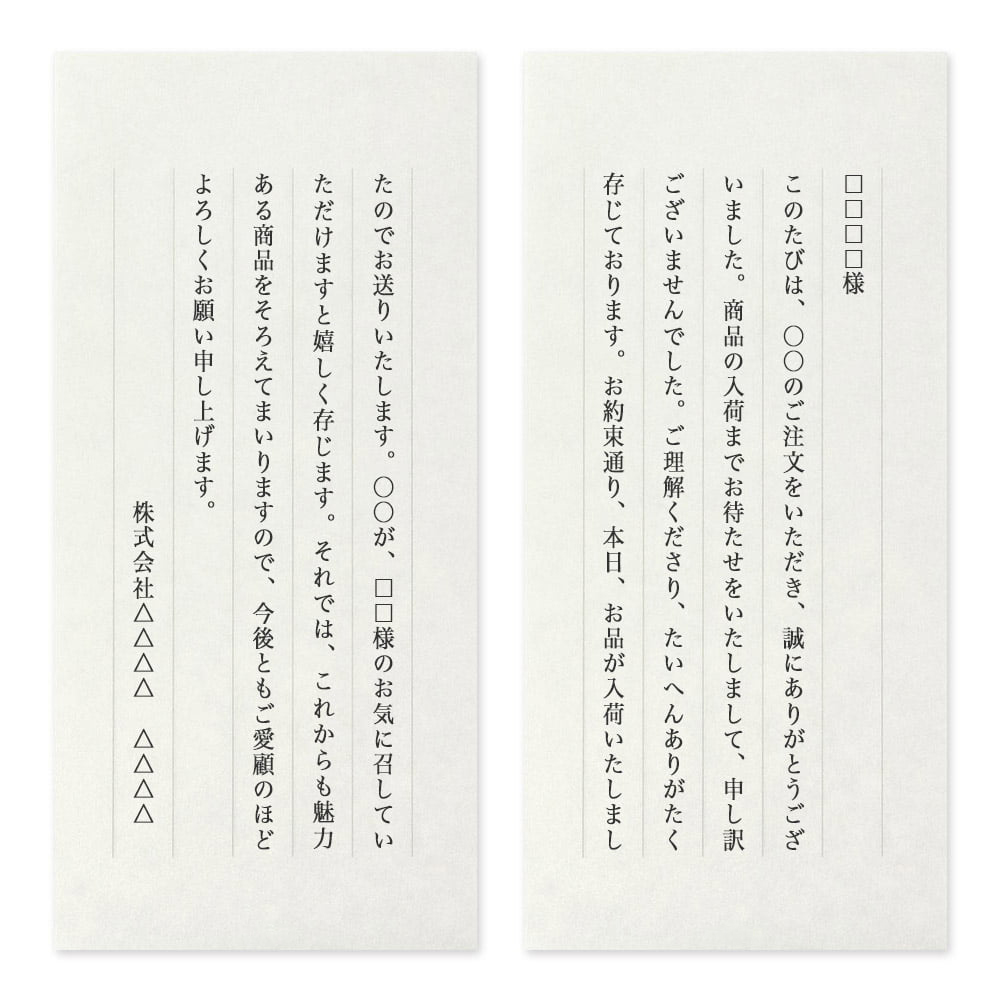 □□□□様
このたびは、〇〇のご注文をいただき、誠にありがとうござ
いました。商品の入荷までお待たせをいたしまして、申し訳
ございませんでした。ご理解くださり、たいへんありがたく
存じております。お約束通り、本日、お品が入荷いたしまし
たのでお送りいたします。〇〇が、□□様のお気に召してい
ただけますと嬉しく存じます。それでは、これからも魅力
ある商品をそろえてまいりますので、今後ともご愛顧のほど
よろしくお願い申し上げます。
株式会社△△△△　△△△△